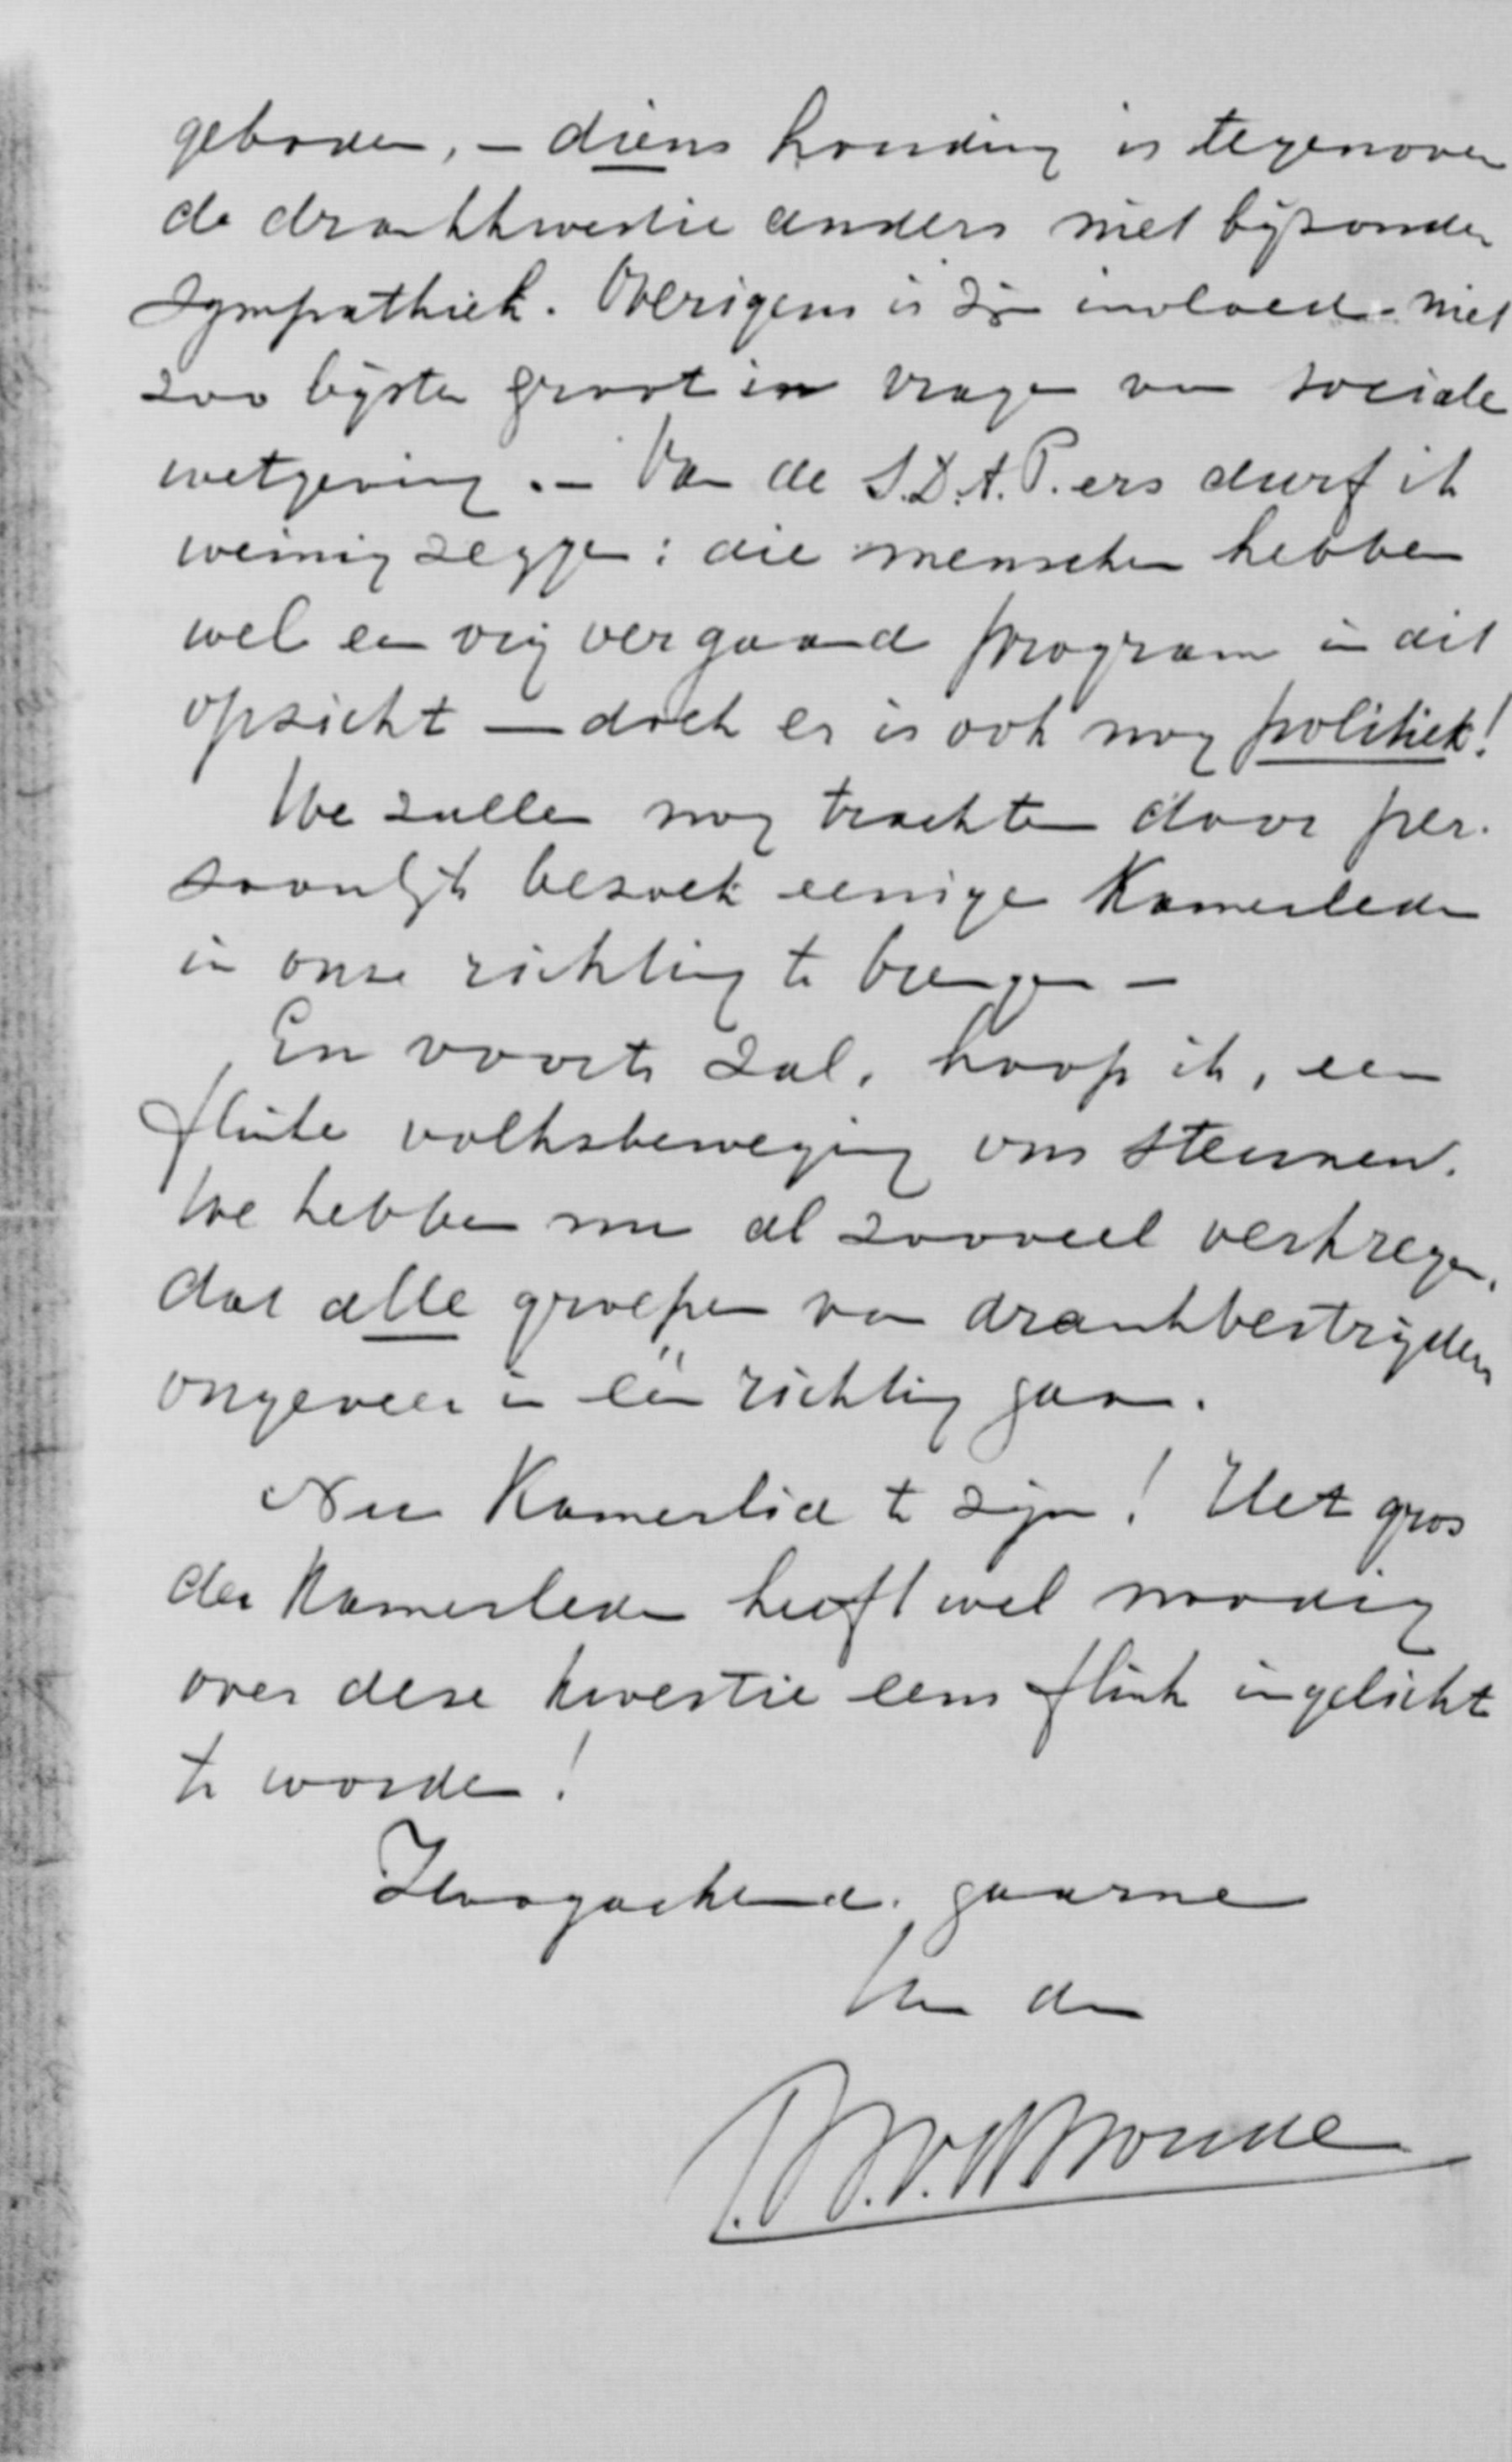 geboden, – diens houding is tegenover
de drankkwestie anders niet bijzonder
sympathiek. Overigens is zijn invloed niet
zoo bijster groot in vragen van sociale
wetgeving. – Van de S.D.A.P.ers durf ik
weinig zeggen: die menschen hebben
wel een vrij vergaand program in dit
opzicht – doch er is ook nog politiek!
We zullen nog trachten door per-
soonlijk bezoek eenige Kamerleden
in onze richting te brengen –
En voorts zal, hoop ik, een
flinke volksbeweging ons steunen.
We hebben nu al zooveel verkregen,
dat alle groepen van drankbestrijders
ongeveer in één richting gaan.
Nu Kamerlid te zijn! Het gros
der Kamerleden heeft wel noodig
over deze kwestie eens flink ingelicht
te worden!
Hoogachtend, gaarne
Uw dn